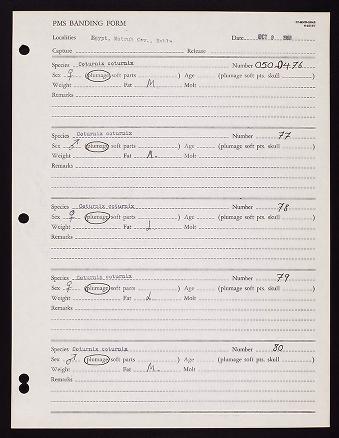 PMS BANDING FORM
Localities Egypt, Matruh Gov.,
Date OCT 9
Capture Release
Species Coturnix coturnix Number 050-0476
Sex ♀ (plumage soft parts ) Age (plumage soft pts. skull )
Weight Fat M Molt
Remarks
Species Coturnix coturnix Number 77
Sex ♂ (plumage soft parts ) Age (plumage soft pts. skull )
Weight Fat M Molt
Remarks
Species Coturnix coturnix Number 78
Sex ♀ (plumage soft parts ) Age (plumage soft pts. skull )
Weight Fat L Molt
Remarks
Species Coturnix coturnix Number 79
Sex ♀ (plumage soft parts ) Age (plumage soft pts. skull )
Weight Fat L Molt
Remarks
Species Coturnix coturnix Number 80
Sex ♂ (plumage soft parts ) Age (plumage soft pts. skull )
Weight Fat M Molt
Remarks